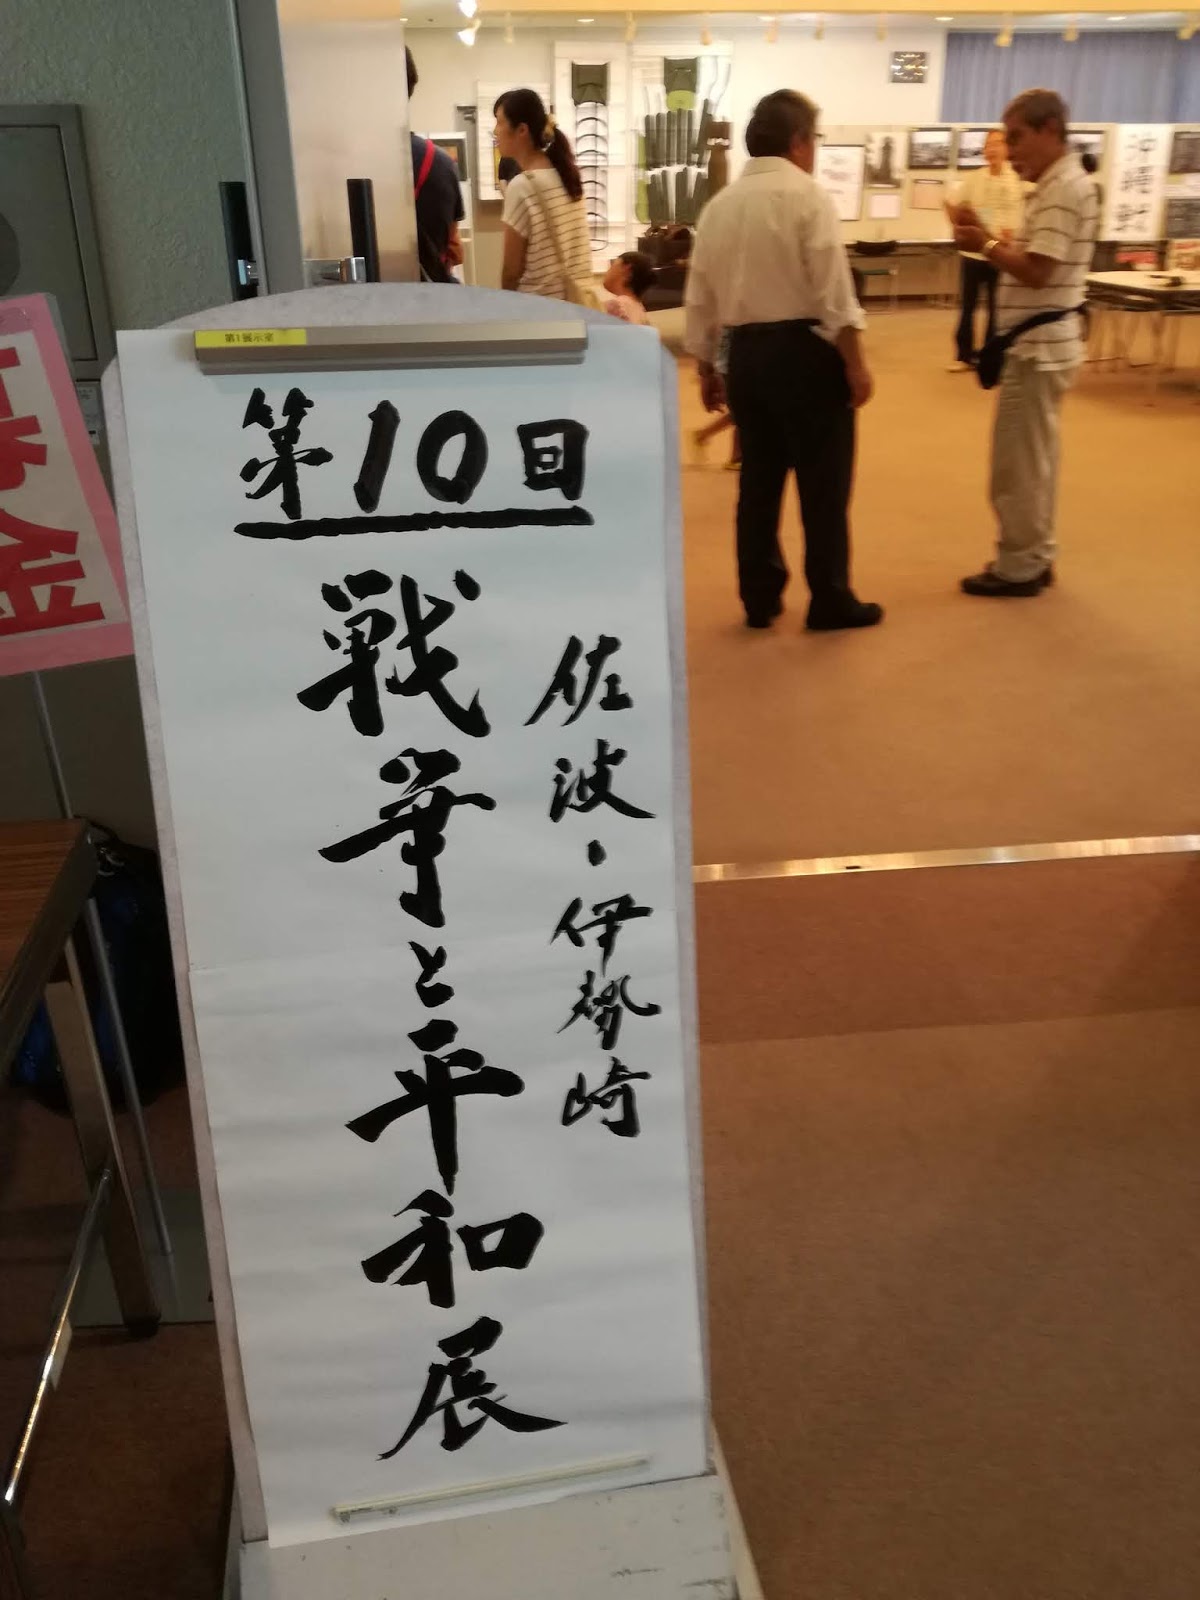 第1展示室
第10回
佐波・伊勢崎
戦争と平和展
募金
沖縄戦